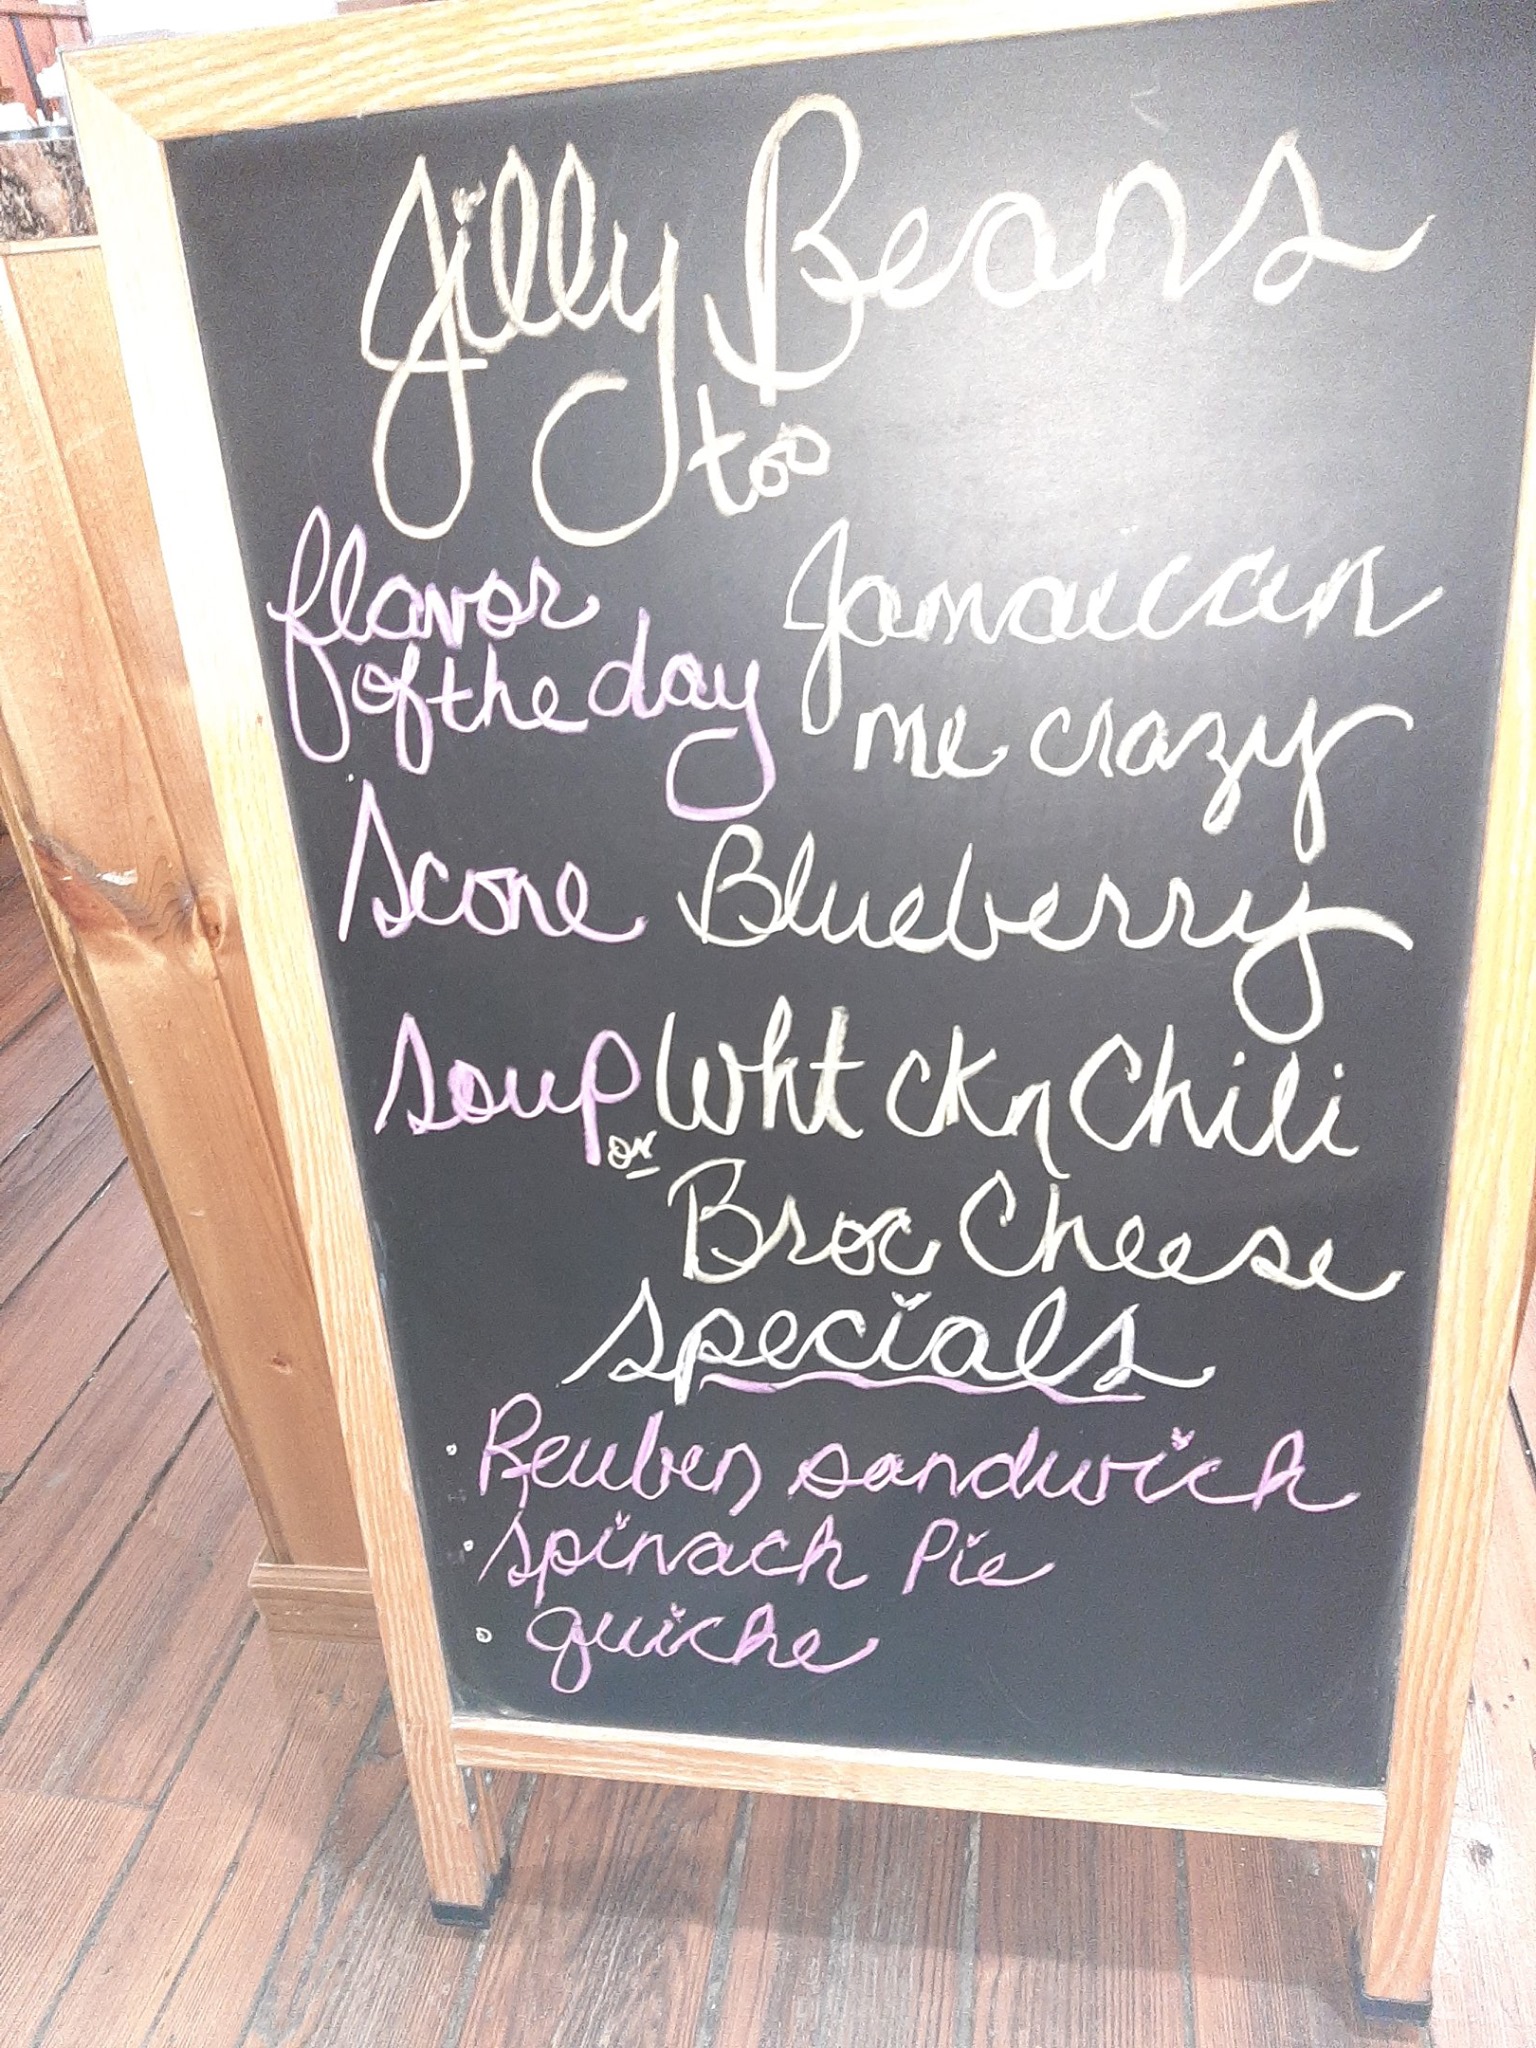 Jilly Beans
too
flavor Jamaican
of the day me crazy
Scone Blueberry
Soup Wht Ckn Chili
or Broc Cheese
Specials
• Reuben sandwich
• Spinach Pie
• quiche